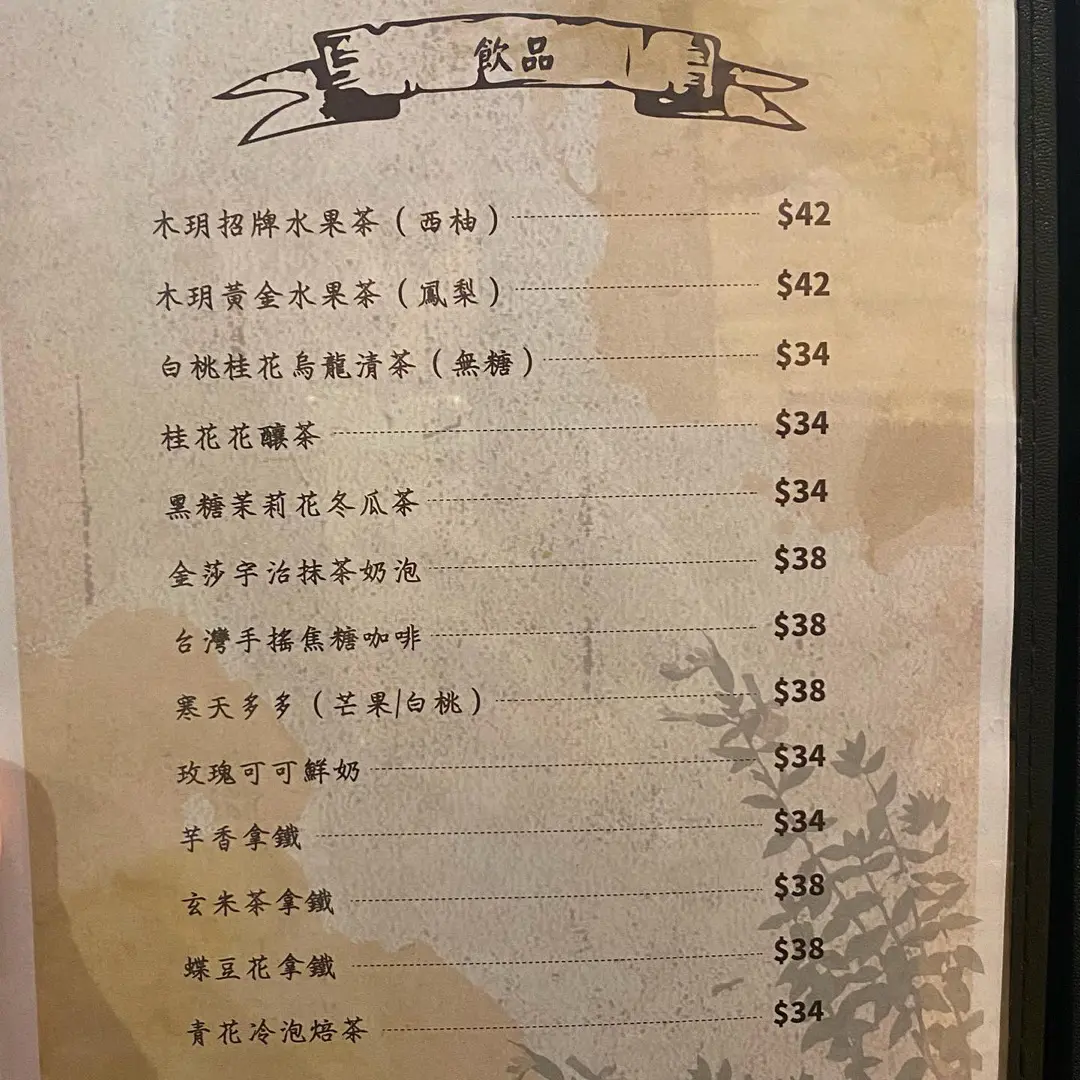 飲品
木玥招牌水果茶（西柚） $42
木玥黃金水果茶（鳳梨） $42
白桃桂花烏龍清茶（無糖） $34
桂花花釀茶 $34
黑糖茉莉花冬瓜茶 $34
金莎宇治抹茶奶泡 $38
台灣手搖焦糖咖啡 $38
寒天多多（芒果/白桃） $38
玫瑰可可鮮奶 $34
芋香拿鐵 $34
玄朱茶拿鐵 $38
蝶豆花拿鐵 $38
青花冷泡焙茶 $34